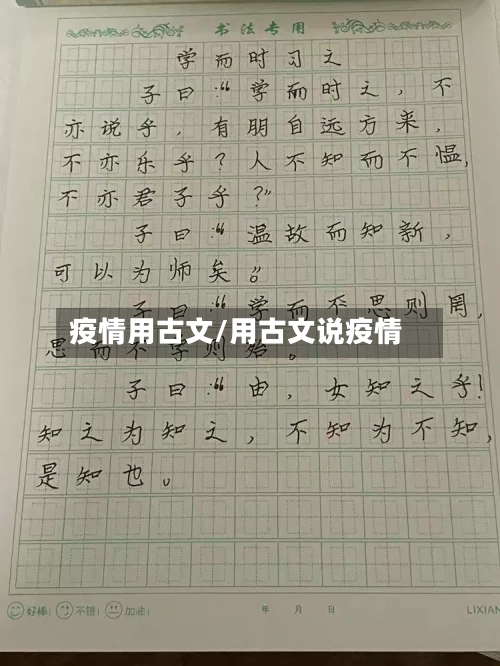 书法专用
学而时习之
子曰:“学而时之,不
亦说乎,有朋自远方来,
不亦乐乎?人不知而不愠,
不亦君子乎?”
子曰:“温故而知新,
可以为师矣。”
子曰:“学而不思则罔,
疫情用古文/用古文说疫情
思而不学则殆。
子曰:“由,女知之乎!
知之为知之,不知为不知,
是知也。
好棒! 不错! 加油! 年 月 日 LIXIAN